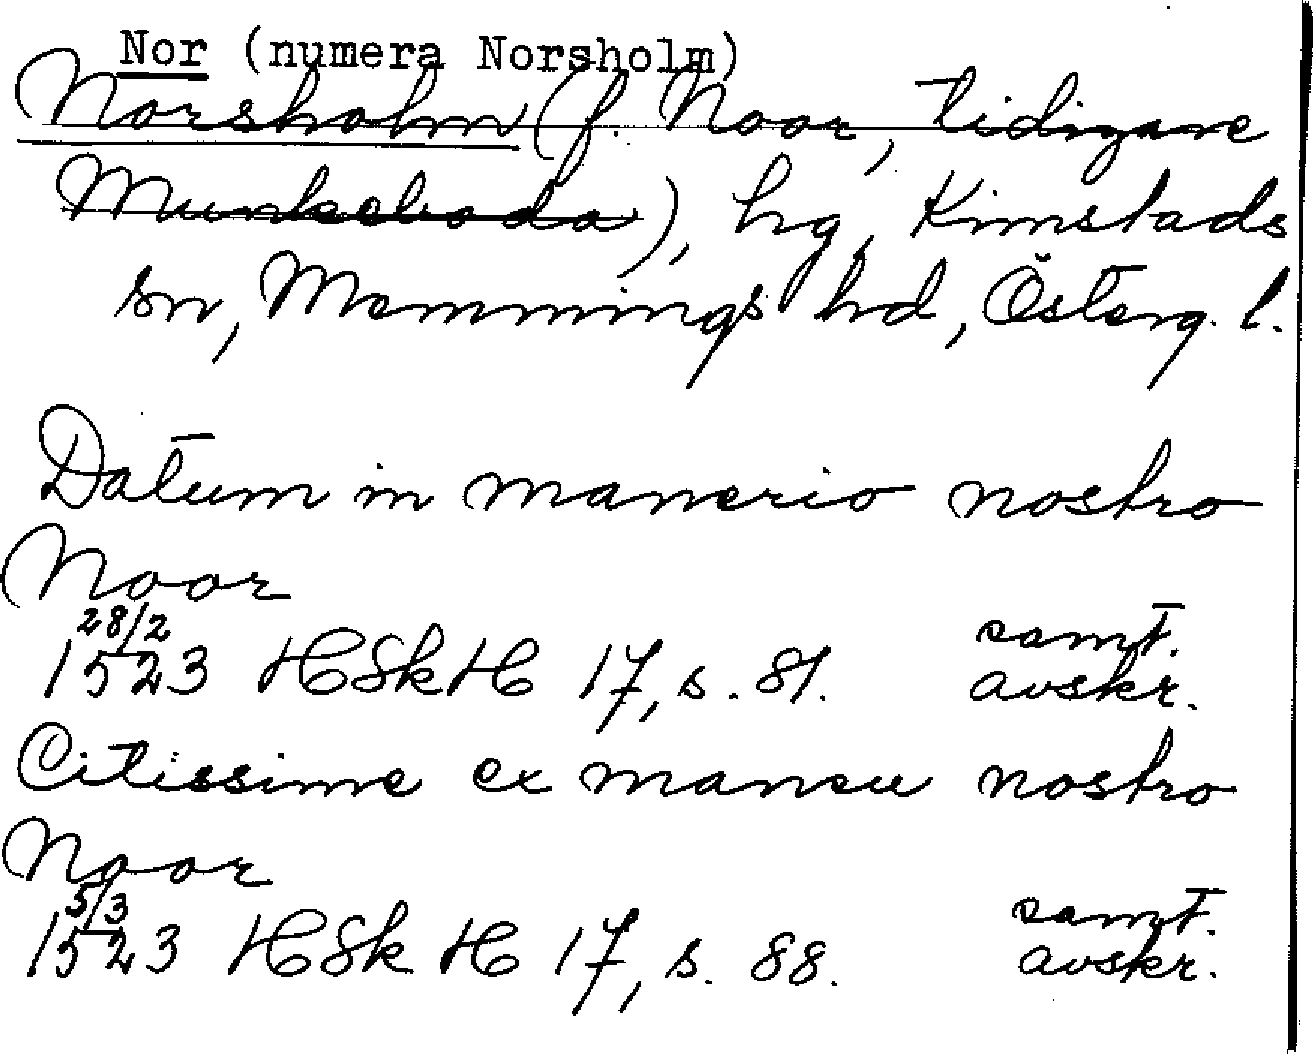 Nor (numera Norsholm)
Norsholm (f. Noor, tidigare
Munkeboda), hg, Kimstads
sn, Memmings hd, Österg. l.
Datum in manerio nostro
Noor
28/2
1523 HSkH 17, s. 81. samt.
avskr.
Citissime ex mansu nostro
Noor
5/3
1523 HSkH 17, s. 88. samt.
avskr.